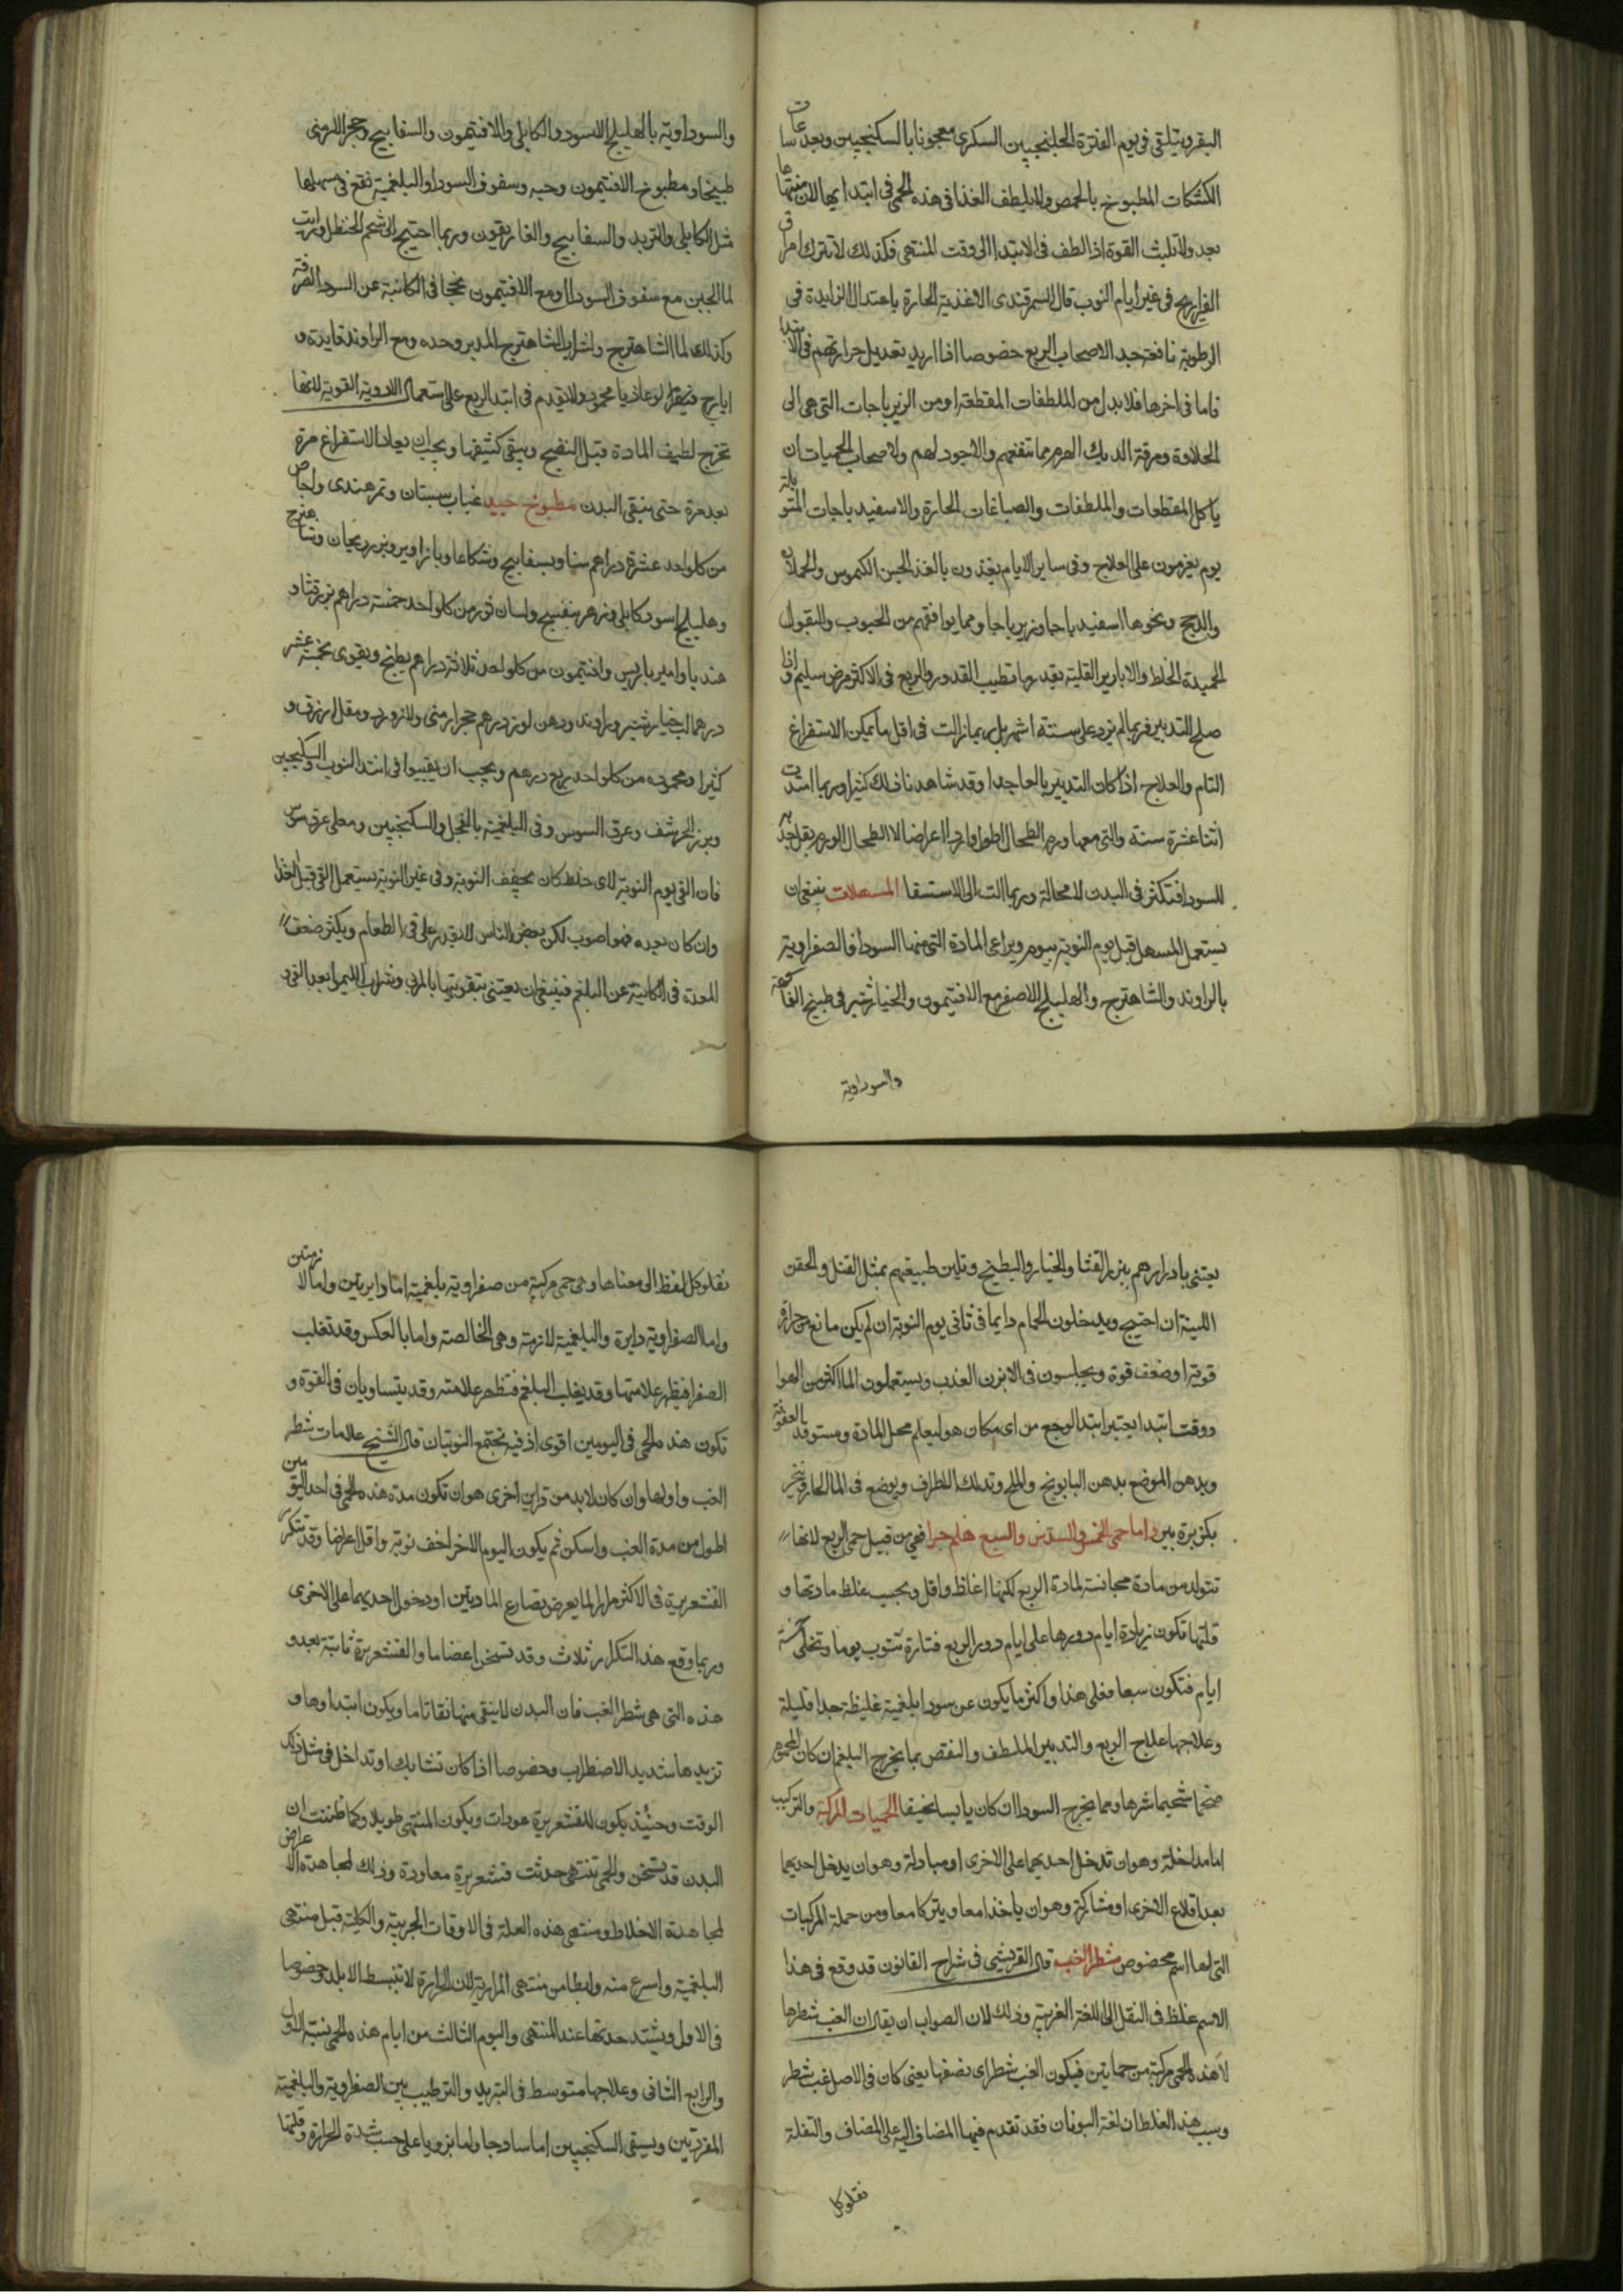 البقر ويتلقى فى يوم الفترة الجلنجبين السكرى معجونا بالسكنجبين وبعد ساعات
الكشكات المطبوخة بالحمص ولا يلطف الغذا فى هذه الحمى فى ابتدايها لان منتهاها
بعد ولا تلبث القوة اذا لطف فى الابتدا الى وقت المنتهى فكذلك لا تترك امراق
الفراريج فى غير ايام النوب قال السمرقندى الاغذية الحارة باعتدال الزايدة فى
الرطوبة نافعة جدا لاصحاب الربع خصوصا اذا اريد تعديل حرارتهم فى الابتدا
فاما فى اخرها فلا بد من الملطفات المقطعة ومن الزيرباجات التى هى الى
الحلاوة ومرقة الديك الهرم مما تنفعهم والاجود لهم ولاصحاب الحميات ان
ياكل المقطعات والملطفات والصباغات الحارة والاسفيدباجات المتوبلة
يوم يعزمون على العلاج وفى ساير الايام يغذون بالغذا الحسن الكيموس والحملان
والدجج ونحوها اسفيدباجا وزيرباجا ومما يوافقهم من الحبوب والبقول
الحميدة الخلط والابازير القليلة بقدر ما تطيب القدور والربع فى الاكثر مرض سليم واذا
صلح التدبير فربما لم يزد على ستة اشهر بل ربما زالت فى اقل ما يمكن الاستفراغ
التام والعلاج اذا كان التدبير بالعا جدا وقد شاهدنا ذلك كثيرا وربما امتدت
اثنا عشرة سنة والتى معها ورم الطحال اطول واردا اعراضا لا الطحال الورم يقل جذبه
للسودا فتكثر فى البدن لا محالة وربما الت الى الاستسقا المسهلات ينبغى ان
يستعمل المسهل قبل يوم النوبة بيوم ويراعى المادة التى منها السودا فالصفراوية
بالراوند والشاهترج والهليلج الاصفر مع الافتيمون والخيارشنبر فى طبيخ الفاكهة
والسوداوية
والسوداوية بالهليلج الاسود والكابلى والافتيمون والسفابيج وحجر اللارمنى
طبيخا ومطبوخ الافتيمون وحبه وسفوف السودا والبلغمية تقع فى مسهلها
مثل الكابلى والتربد والسفابيج والغاريقون وربما احتيج الى شحم الحنظل ورايت
لما الجبن مع سفوف السودا او مع الافتيمون نجحا فى الكائنة عن السودا الصرفة
وكذلك لما الشاهترج ولشراب الشاهترج المدبر وحده ومع الراوند فايدة و
ايارج فيقرا لوغاذيا محمود ولا يقدم فى ابتدا الربع على استعمال الادوية القوية لانها
تخرج لطيف المادة قبل النضج ويبقى كثيفها ويجب ان يعاد الاستفراغ مرة
بعد مرة حتى ينقى البدن مطبوخ جيد عناب سبستان وتمرهندى واجاص
من كل واحد عشرة دراهم سنا وبسفابيج وشكاعا وباذاورد وبزر ريحان وشاهترج
وهليلج اسود كابلى وزهر بنفسج ولسان ثور من كل واحد خمسة دراهم بزر قثا و
هندبا واميرباريس وافتيمون من كل واحد ثلاثة دراهم يطبخ ويقوى بخمسة عشر
درهما لب خيارشنبر وراوند ودهن لوز درهم حجر ارمنى ولازورد ومقل ازرق و
كثيرا ومحموده من كل واحد ربع درهم ويجب ان يقيبوا فى ابتدا النوب بالسكنجبين
وبزر الحرشف وعرق السوس وفى البلغمية بالفجل والسكنجبين ومعلى عرق سوس
فان القى يوم النوبة لاى خلط كان يخفف النوبة وفى غير النوبة يستعمل القى قبل الغذا
وان كان بعده فهو اصوب لكن بعض الناس لا يقدر على قى الطعام ويكثر ضعف
المعدة فى الكاينة عن البلغم فينبغى ان يعتنى بتقويتها بالمربى وشراب الليمو بعد القى و
يعتنى بادرارهم ببزر القثا والخيار والبطيخ وتلين طبيعتهم بمثل الفتل والحقن
اللينة ان احتيج ويدخلون الحمام دايما فى ثانى يوم النوبة ان لم يكن مانع من حرارة
قوية او ضعف قوة ويجلسون فى الابزن العذب ويستعملون الما اكثر من الهوا
ووقت ابتدا يعتبر ابتدا الوجع من اى مكان هو ليعلم محل المادة ومستوقد العفونة
ويدهن الموضع بدهن البابونج والملح وتدلك الاطراف ويوضع فى الما الحار ويبخر
بكزبرة بير واما حمى الخمس والسدس والسبع هلم جرا فهى من قبيل حمى الربع لانها
تتولد من مادة مجانسة لمادة الربع لكنها اغلظ واقل وبحسب غلظ مادتها و
قلتها تكون زيادة ايام دورها على ايام دور الربع فتارة تنوب يوما وتخلى خمسة
ايام فتكون سبعا فعلى هذا واكثر ما يكون عن سودا بلغمية غليظة جدا قليلة
وعلاجها علاج الربع والتدبير الملطف والنقص بما يخرج البلغم ان كان المحموم
ضخما شحيما شرها ومما يخرج السودا ان كان يابسا نحيفا الحميات المركبة والتركيب
اما مداخلة وهو ان تدخل احديهما على الاخرى او مبادلة وهو ان يدخل احديهما
بعد اقلاع الاخرى او مشاركة وهو ان ياخذا معا ويتركا معا ومن جملة المركبات
التى لها اسم مخصوص شطر الغب قال القريشى فى شراح القانون قد وقع فى هذا
الاسم غلط فى النقل الى اللغة العربية وذلك لان الصواب ان يقال ان الغب شطرها
لا هذه الحمى مركبة من حمايتين فيكون الغب شطرا اى نصفها يعنى كان فى الاصل غب شطر
وسبب هذا الغلط ان لغة اليونان فقد تقدم فيها المضاف اليه على المضاف والنقلة
نقلو كل
نقلو كل لفظ الى معناها وهى حمى مركبة من صفراوية بلغمية اما دايرتين واما لازمتين
واما الصفراوية دايرة والبلغمية لازمة وهى الخالصة واما بالعكس وقد تغلب
الصفرا فيظهر علامتها وقد يغلب البلغم فتظهر علامته وقد يتساويان فى القوة و
تكون هذه الحمى فى اليومين اقوى اذ فيه تجتمع النوبتان قال الشيخ علامات شطر
الغب واولها وان كان لابد من قراين اخرى هو ان تكون مدة هذه الحمى فى احد اليومين
اطول من مدة الغب واسكن ثم يكون اليوم الاخر اخف نوبة واقل اعراضا وقد تتكرر
القشعريرة فى الاكثر مرارا لما يعرض بصارع المادتين او دخول احديهما على الاخرى
وربما وقع هذا التكرار ثلاث وقد تسخن اعضاما والقشعريرة ثابتة بعد و
هذه التى هى شطر الغب فان البدن لا ينقى منها نقا تاما ويكون ابتداوها و
تزيدها شديد الاضطراب وخصوصا اذا كان تشابك او تداخل فى مثل ذلك
الوقت وحينئذ يكون للقشعريرة عودات ويكون المنتهى طويلا وكما ظننت ان
البدن قد تسخن والحمى تنتهى حدثت قشعريرة معاودة وذلك لمجاهدة الاعراض
لمجاهدة الاخلاط ومنتهى هذه العلة فى الاوقات الجزيية والكلية قبل منتهى
البلغمية واسرع منه وابطا من منتهى المرارية لان الحرارة لا تنبسط الا بلد وخصوصا
فى الاول ويشتد حدتها عند المنتهى واليوم الثالث من ايام هذه الحمى يشبه الاول
والرابع الثانى وعلاجها متوسط فى التبريد والترطيب بين الصفراوية والبلغمية
المفردتين ويسقى السكنجبين اما ساذجا واما بزوريا على حسب شدة الحرارة وقلتها